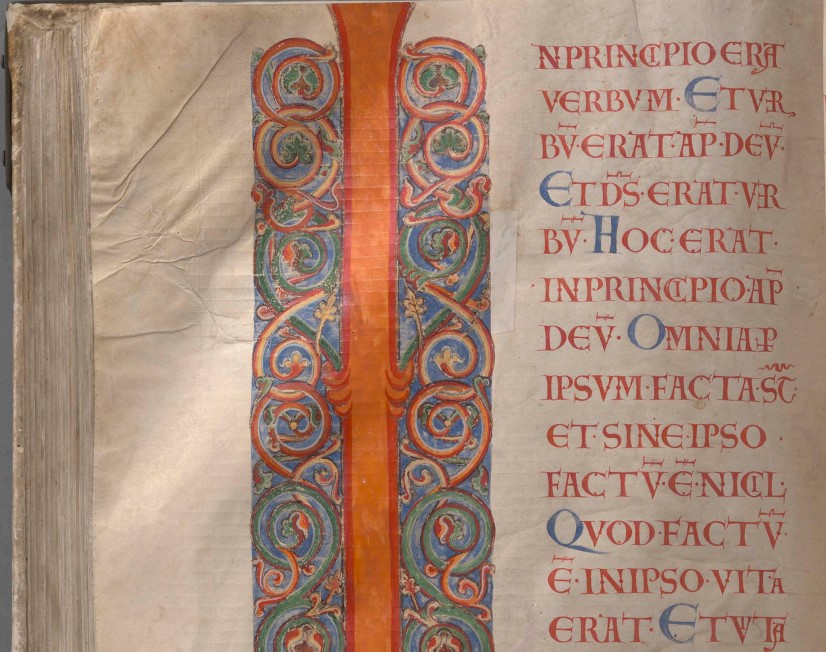 NPRINCIPIO ERA
VERBVM· ET VER
BV̄· ERAT· AP̄· DEV̄·
ET DS̄· ERAT· VER
BV̄· HOC· ERAT·
·IN PRINCIPIO· AP̄
DEV̄· OMNIA· P̄
IPSVM· FACTA· ST̄·
ET· SINE· IPSO·
FACTV̄· Ē· NICIL·
QVOD· FACTV̄·
Ē· IN IPSO· VITA
ERAT· ET VITA